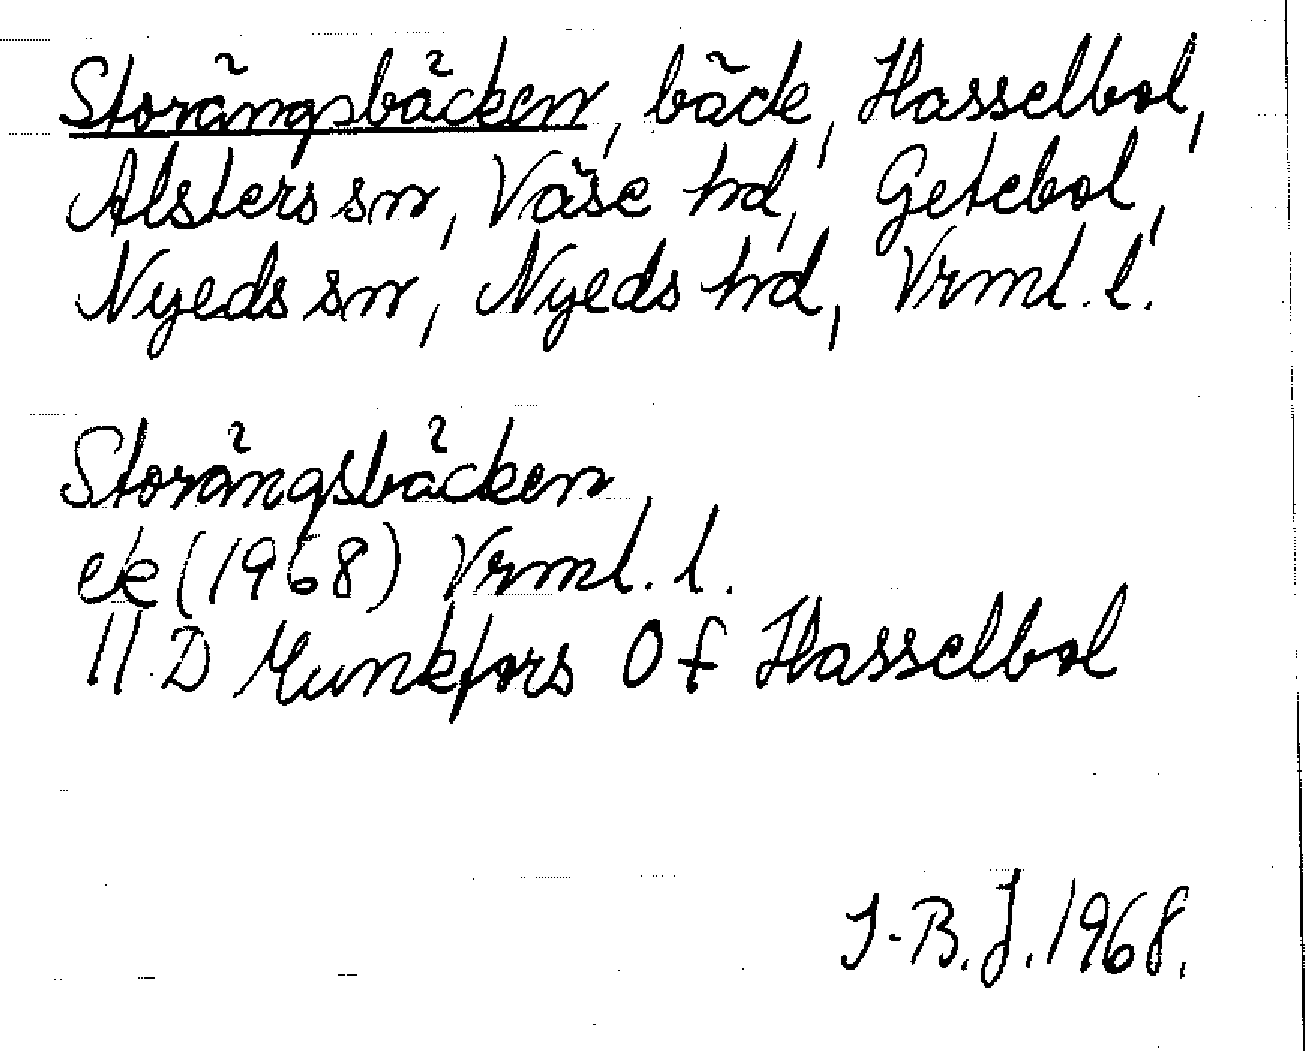 Storängsbäcken, bäck, Hasselbol,
Alsters sn, Väse hd, Getebol,
Nyeds sn, Nyeds hd, Vrml. l.
Storängsbäcken
ek (1968) Vrml. l.
11 D Munkfors 0 f Hasselbol
I-B. J. 1968.